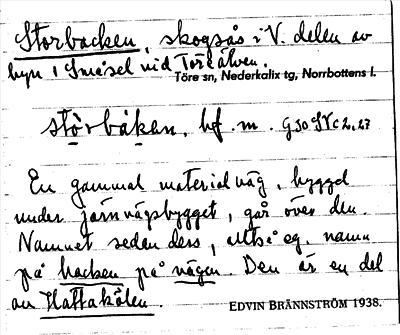 Storbacken, skogsås i V. delen av
byn i Smésel vid Töreälven.
Töre sn, Nederkalix tg, Norrbottens l.
stò̀rbàkan, bf. m. G30
En gammal materialväg, byggd
under järnvägsbygget, går över den.
Namnet sedan dess, alltså eg. namn
på backen på vägen. Den är en del
av Hattakölen.
EDVIN BRÄNNSTRÖM 1938.